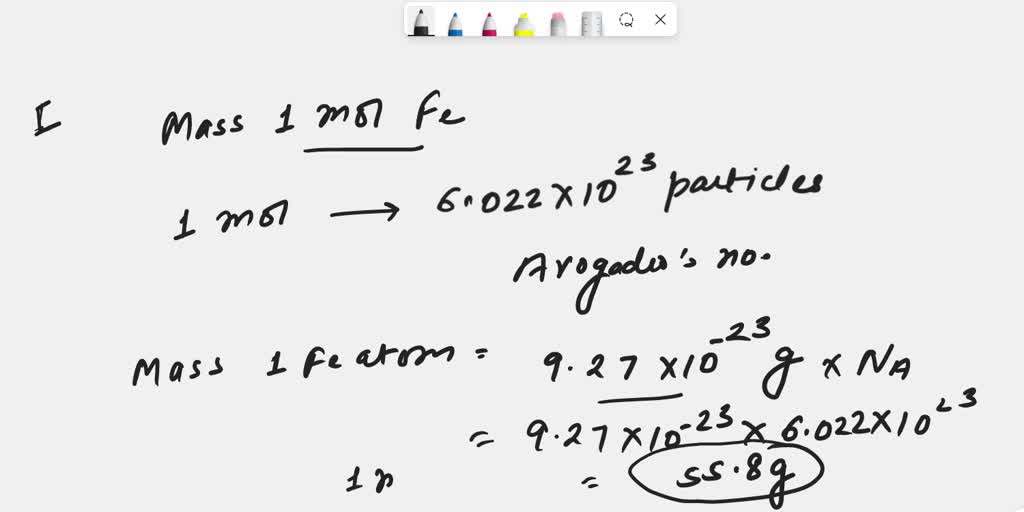 I Mass 1 mol Fe
1 mol → 6.022 × 10²³ particles
Avogadro's no.
Mass 1 Fe atom = 9.27 × 10⁻²³ g × NA
= 9.27 × 10⁻²³ × 6.022 × 10²³
= 55.8g